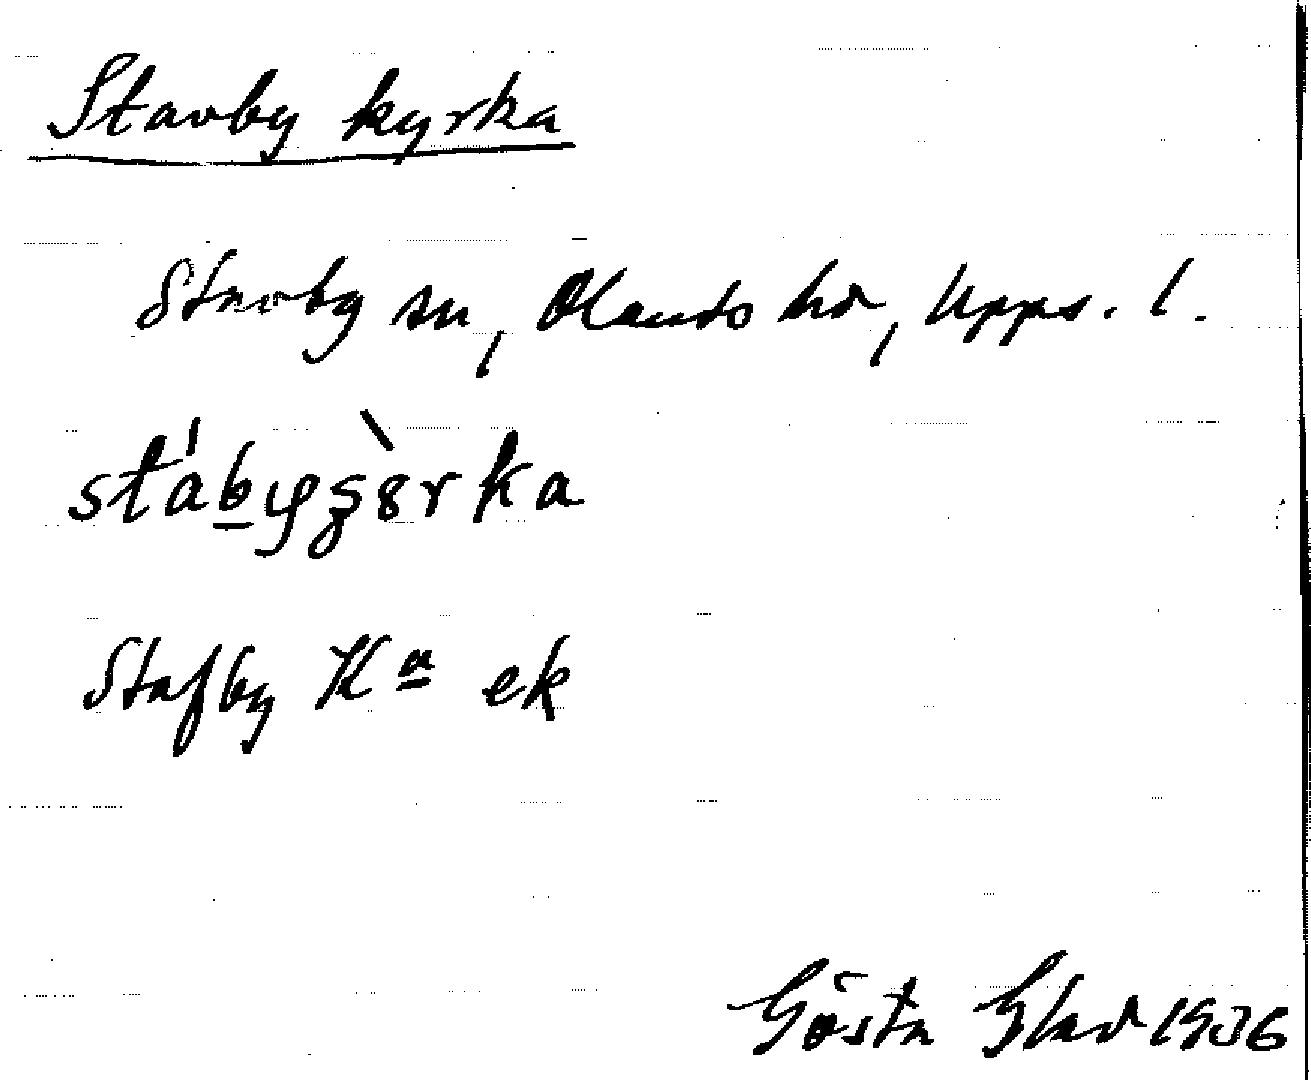 Stavby kyrka
Stavby sn, Olands hd, Upps. l.
Stafby Kᵃ ek
Gösta Blad 1936